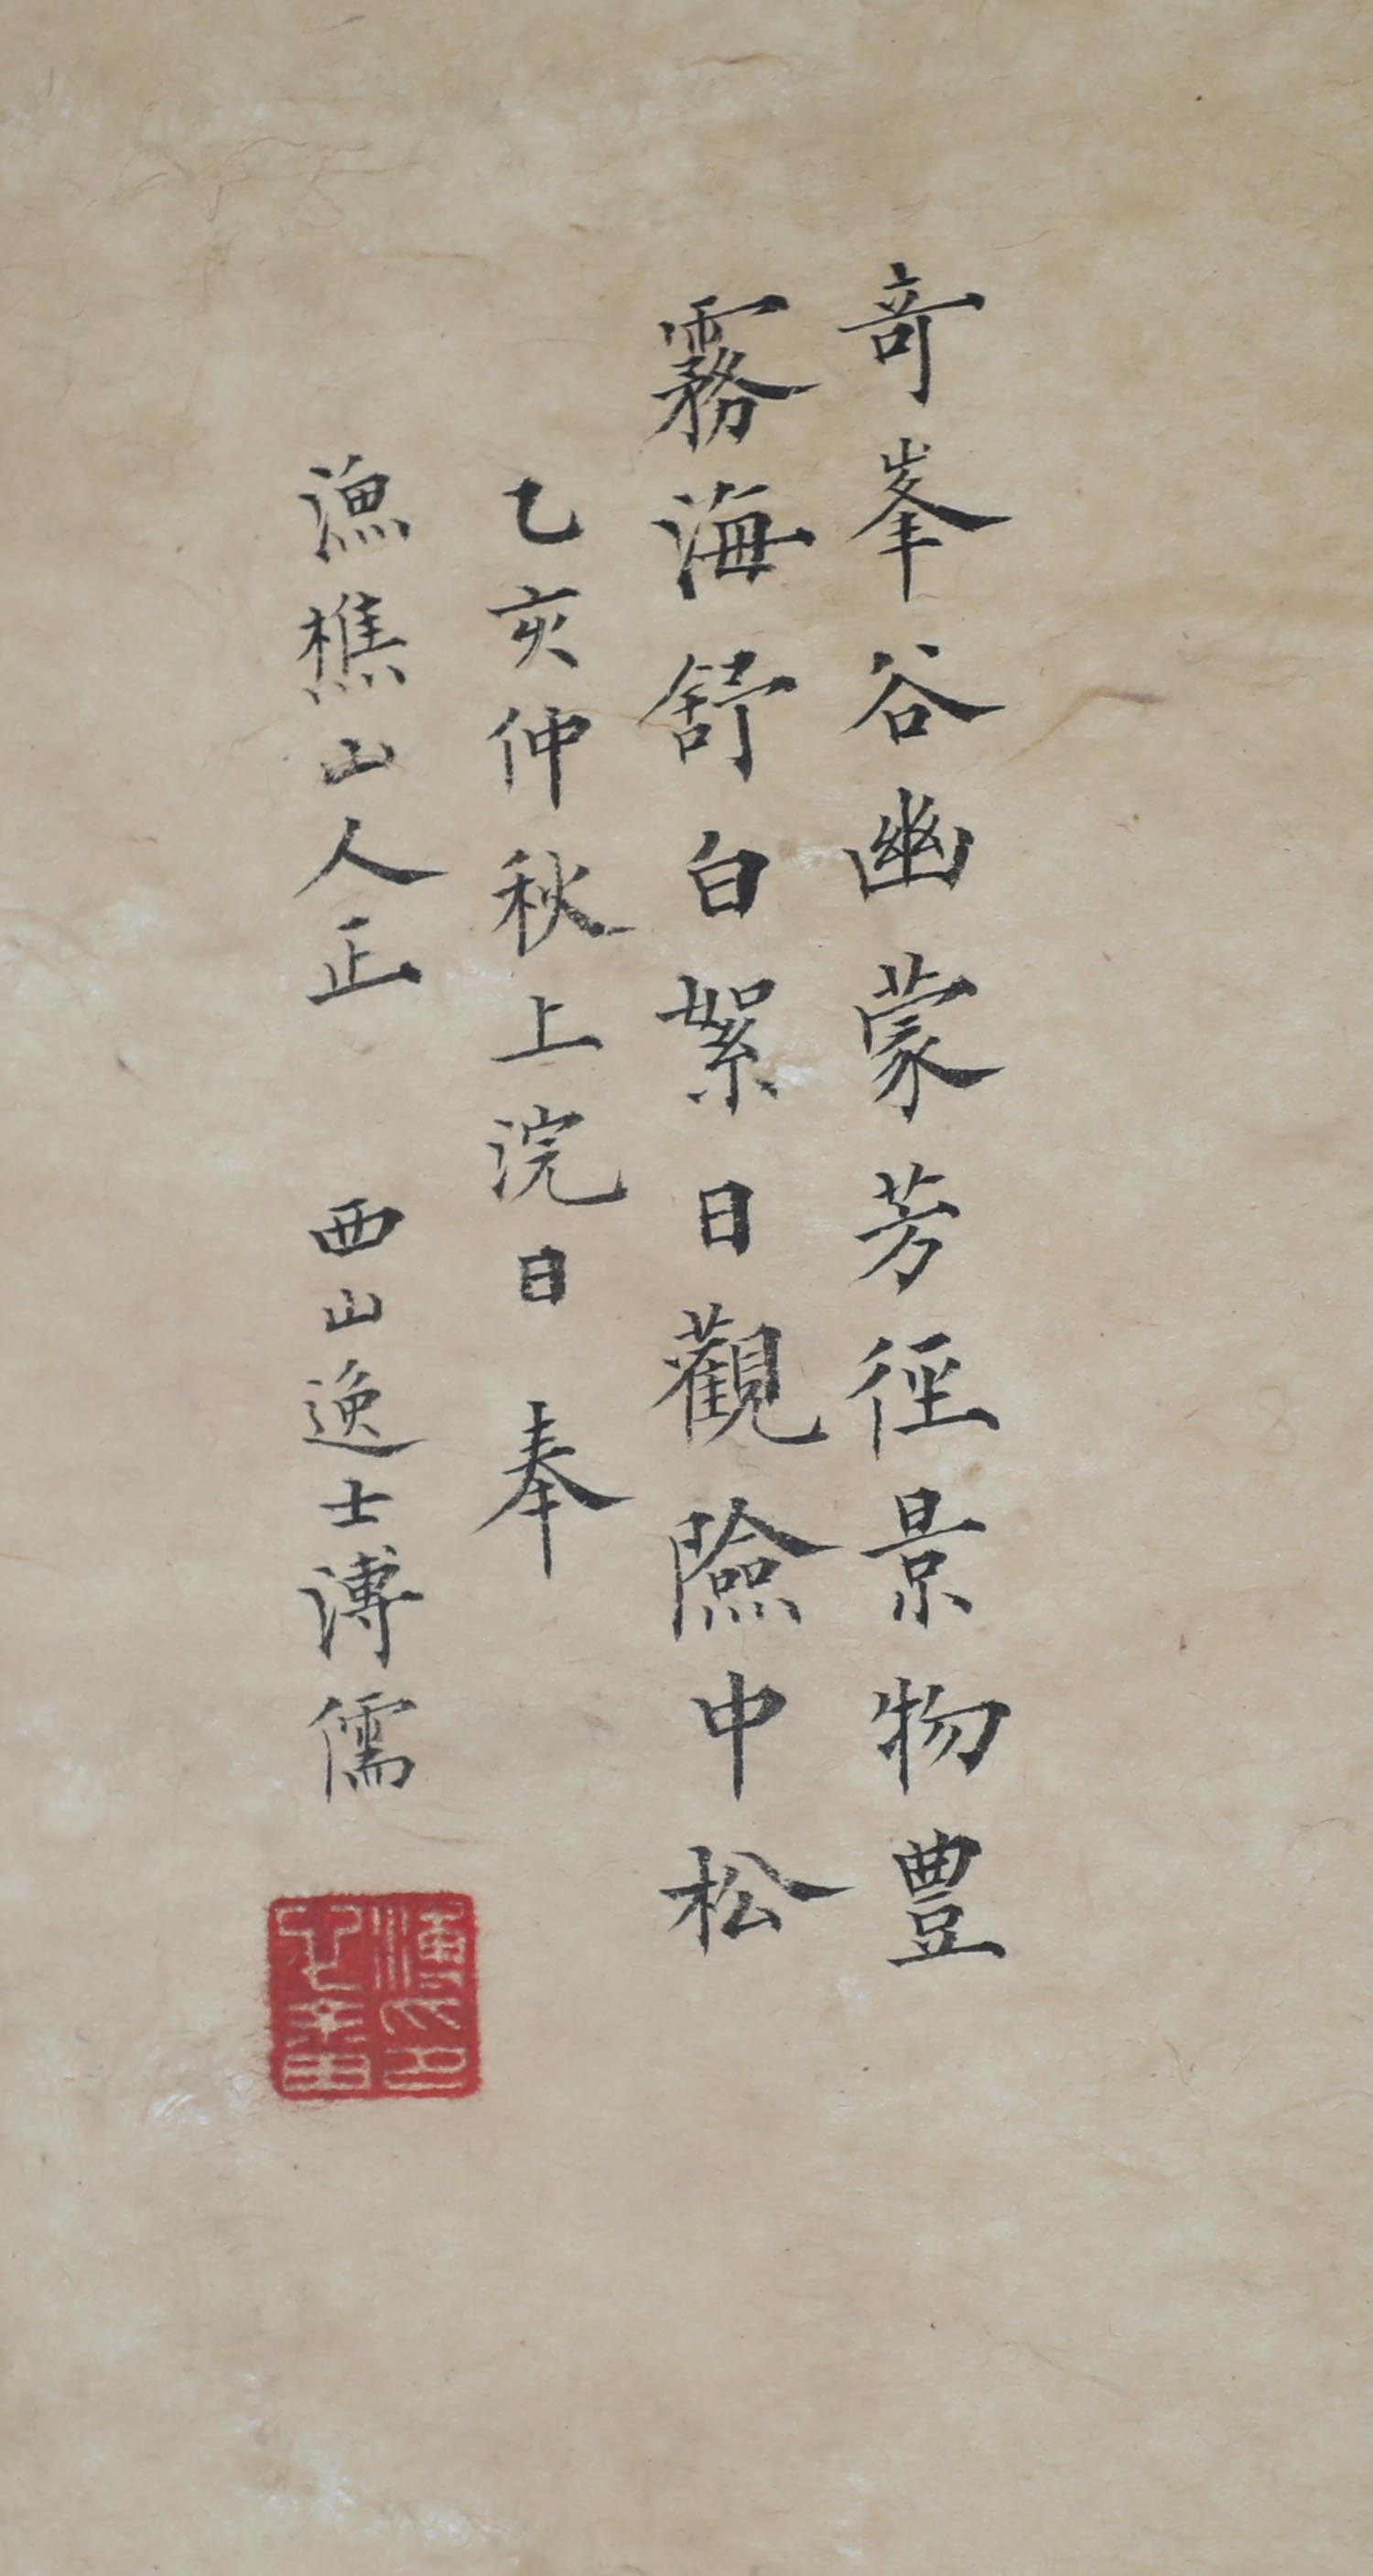 奇峯谷幽蒙芳徑景物豊
霧海舒白絮日觀險中松
乙亥仲秋上浣日奉
漁樵山人正 西山逸士溥儒